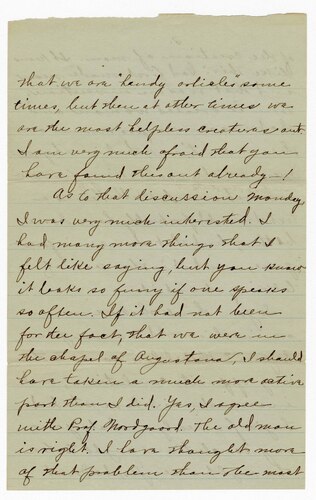 that we are "handy articles" some
times, but then at other times we
are the most helpless creatures out.
I am very much afraid that you
have found this out already—!
As to that discussion Monday
I was very much interested. I
had many more things that I
felt like saying, but you know
it looks so funny if one speaks
so often. If it had not been
for the fact, that we were in
the chapel of Augustana, I should
have taken a much more active
part than I did. Yes, I agree
with Prof. Nordgaard. The old man
is right. I have thought more
of that problem than the most